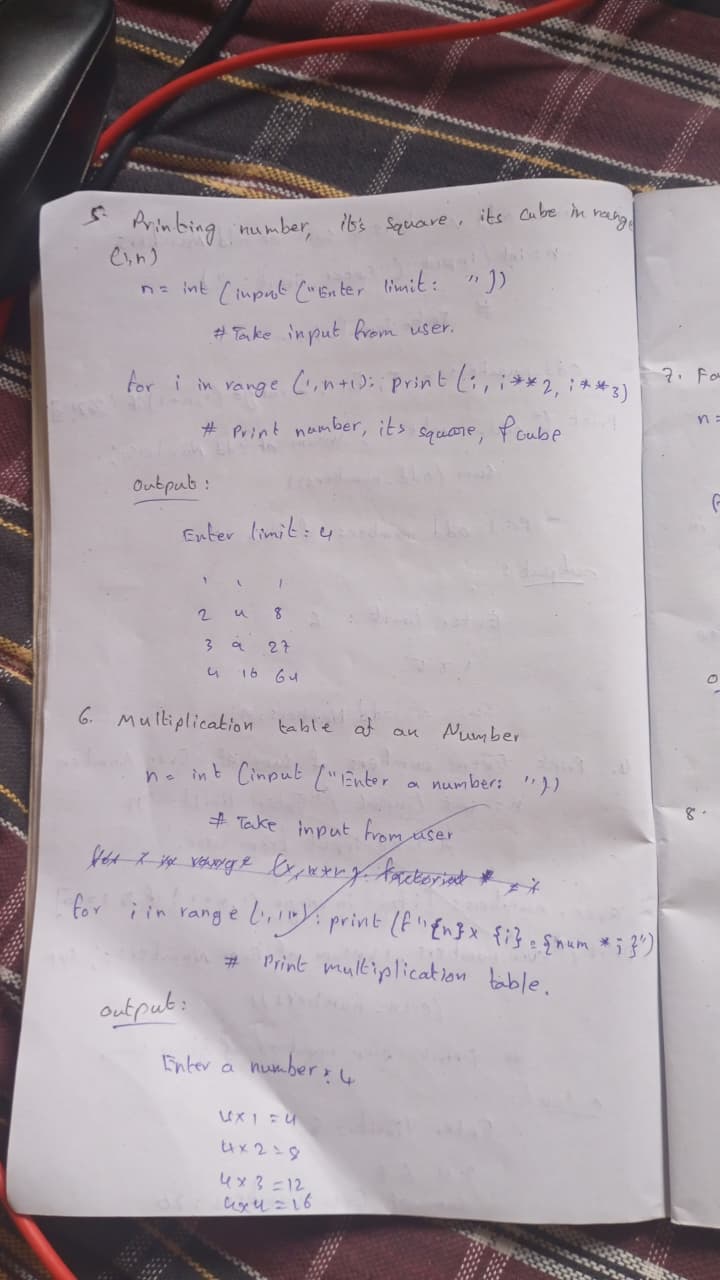 5. Printing number, it's square, its cube in range
(1,n)
n = int (input ("Enter limit: "))
# Take input from user.
for i in range (1, n+1): print (i, i**2, i**3)
# Print number, its square, & cube
Output:
Enter limit: 4
1 1 1
2 4 8
3 9 27
4 16 64
6. Multiplication table of an Number
n = int (input ("Enter a number: "))
# Take input from user
for i in range (1, 11): print (f"{n} x {i} = {num * i}")
# Print multiplication table.
Output:
Enter a number: 4
4x1 = 4
4x2 = 8
4x3 = 12
4x4 = 16
7. Fo
n =
8.